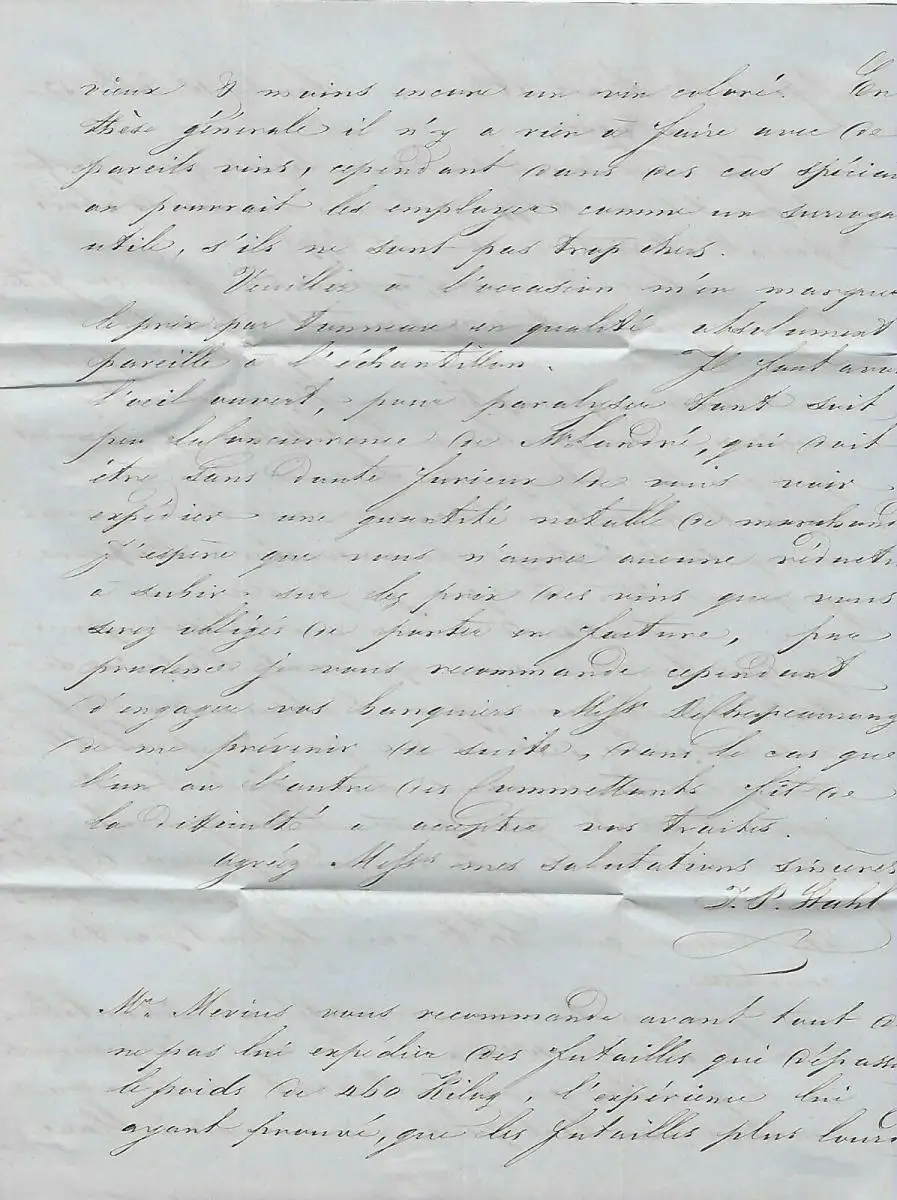 vieux & moins encore un vin coloré. En
thèse générale il n'y a rien à faire avec de
pareils vins, cependant dans des cas spéciau
on pourrait les employer comme un surroga
utile, s'ils ne sont pas trop chers.
Veuillez à l'occasion m'en marque
le prix par tonneau en qualité absolument
pareille à l'échantillon. Il faut avo
l'oeil ouvert, pour paralyser tant soit
peu la Concurrence de Mr Landré, qui doit
être sans doute furieux de vous voir
expédier une quantité notable de marchand
J'espère que vous n'aurez aucune réducti
à subir sur les prix des vins que vous
serez obligés de porter en facture, par
prudence je vous recommande cependant
d'engager vos banquiers Messrs
de me prévenir de suite, dans le cas que
l'un ou l'autre des Commettants fît de
la difficulté à accepter vos traites.
Agréez Messrs mes salutations sincères
J. P. Stahl
Mr. Merius vous recommande avant tout d
ne pas lui expédier des futailles qui dépasse
le poids de 460 Kilog, l'expérience lui
ayant prouvé, que les futailles plus lourd